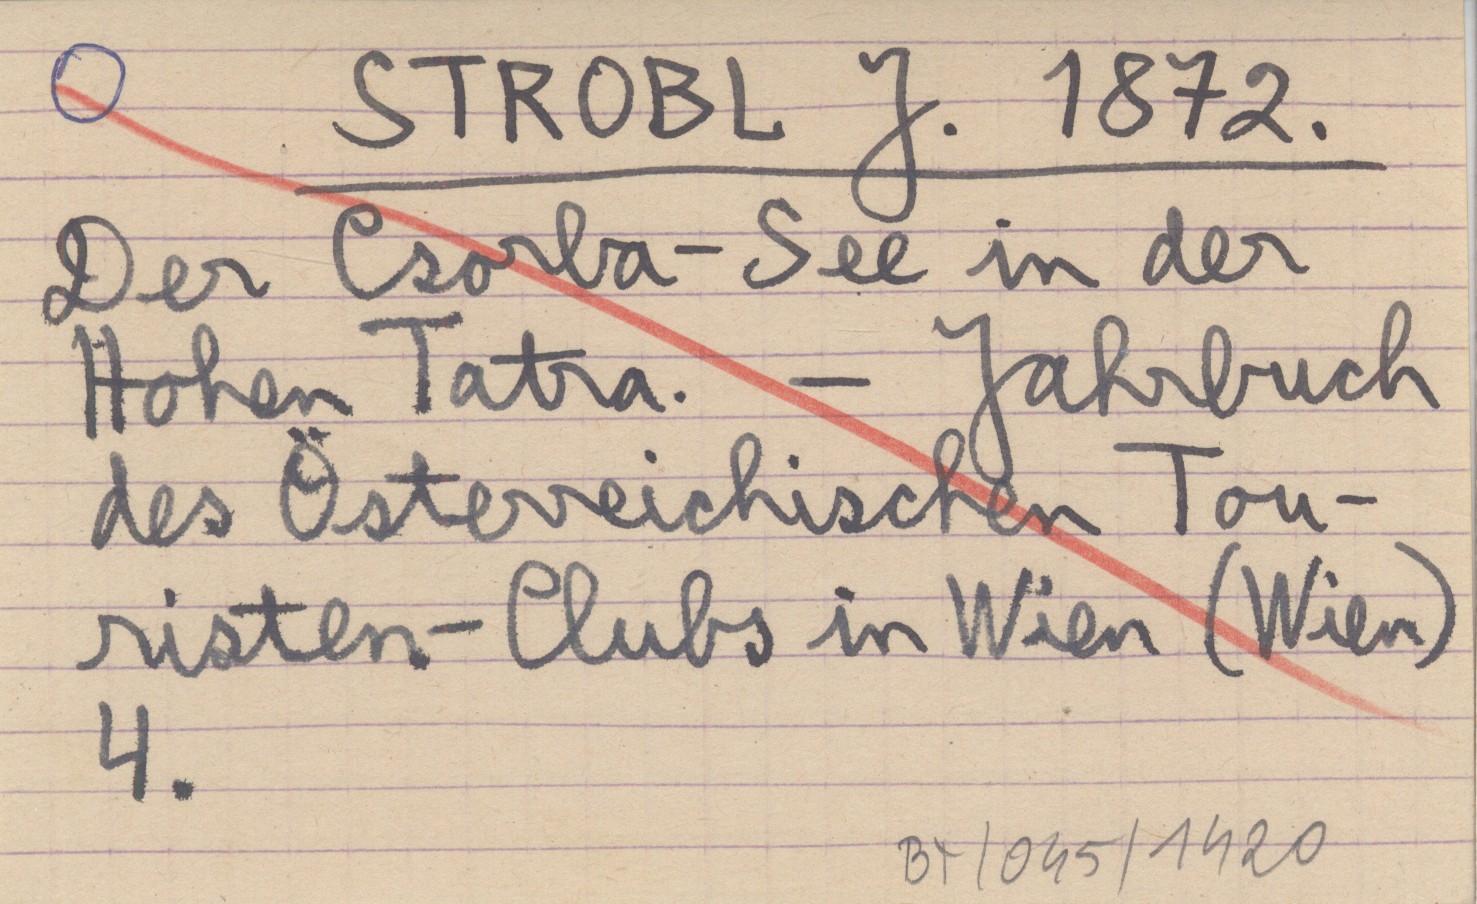 STROBL J. 1872.
Der Csorba-See in der
Hohen Tatra. – Jahrbuch
des Österreichischen Tou-
risten-Clubs in Wien (Wien)
4.
BT/045/1420